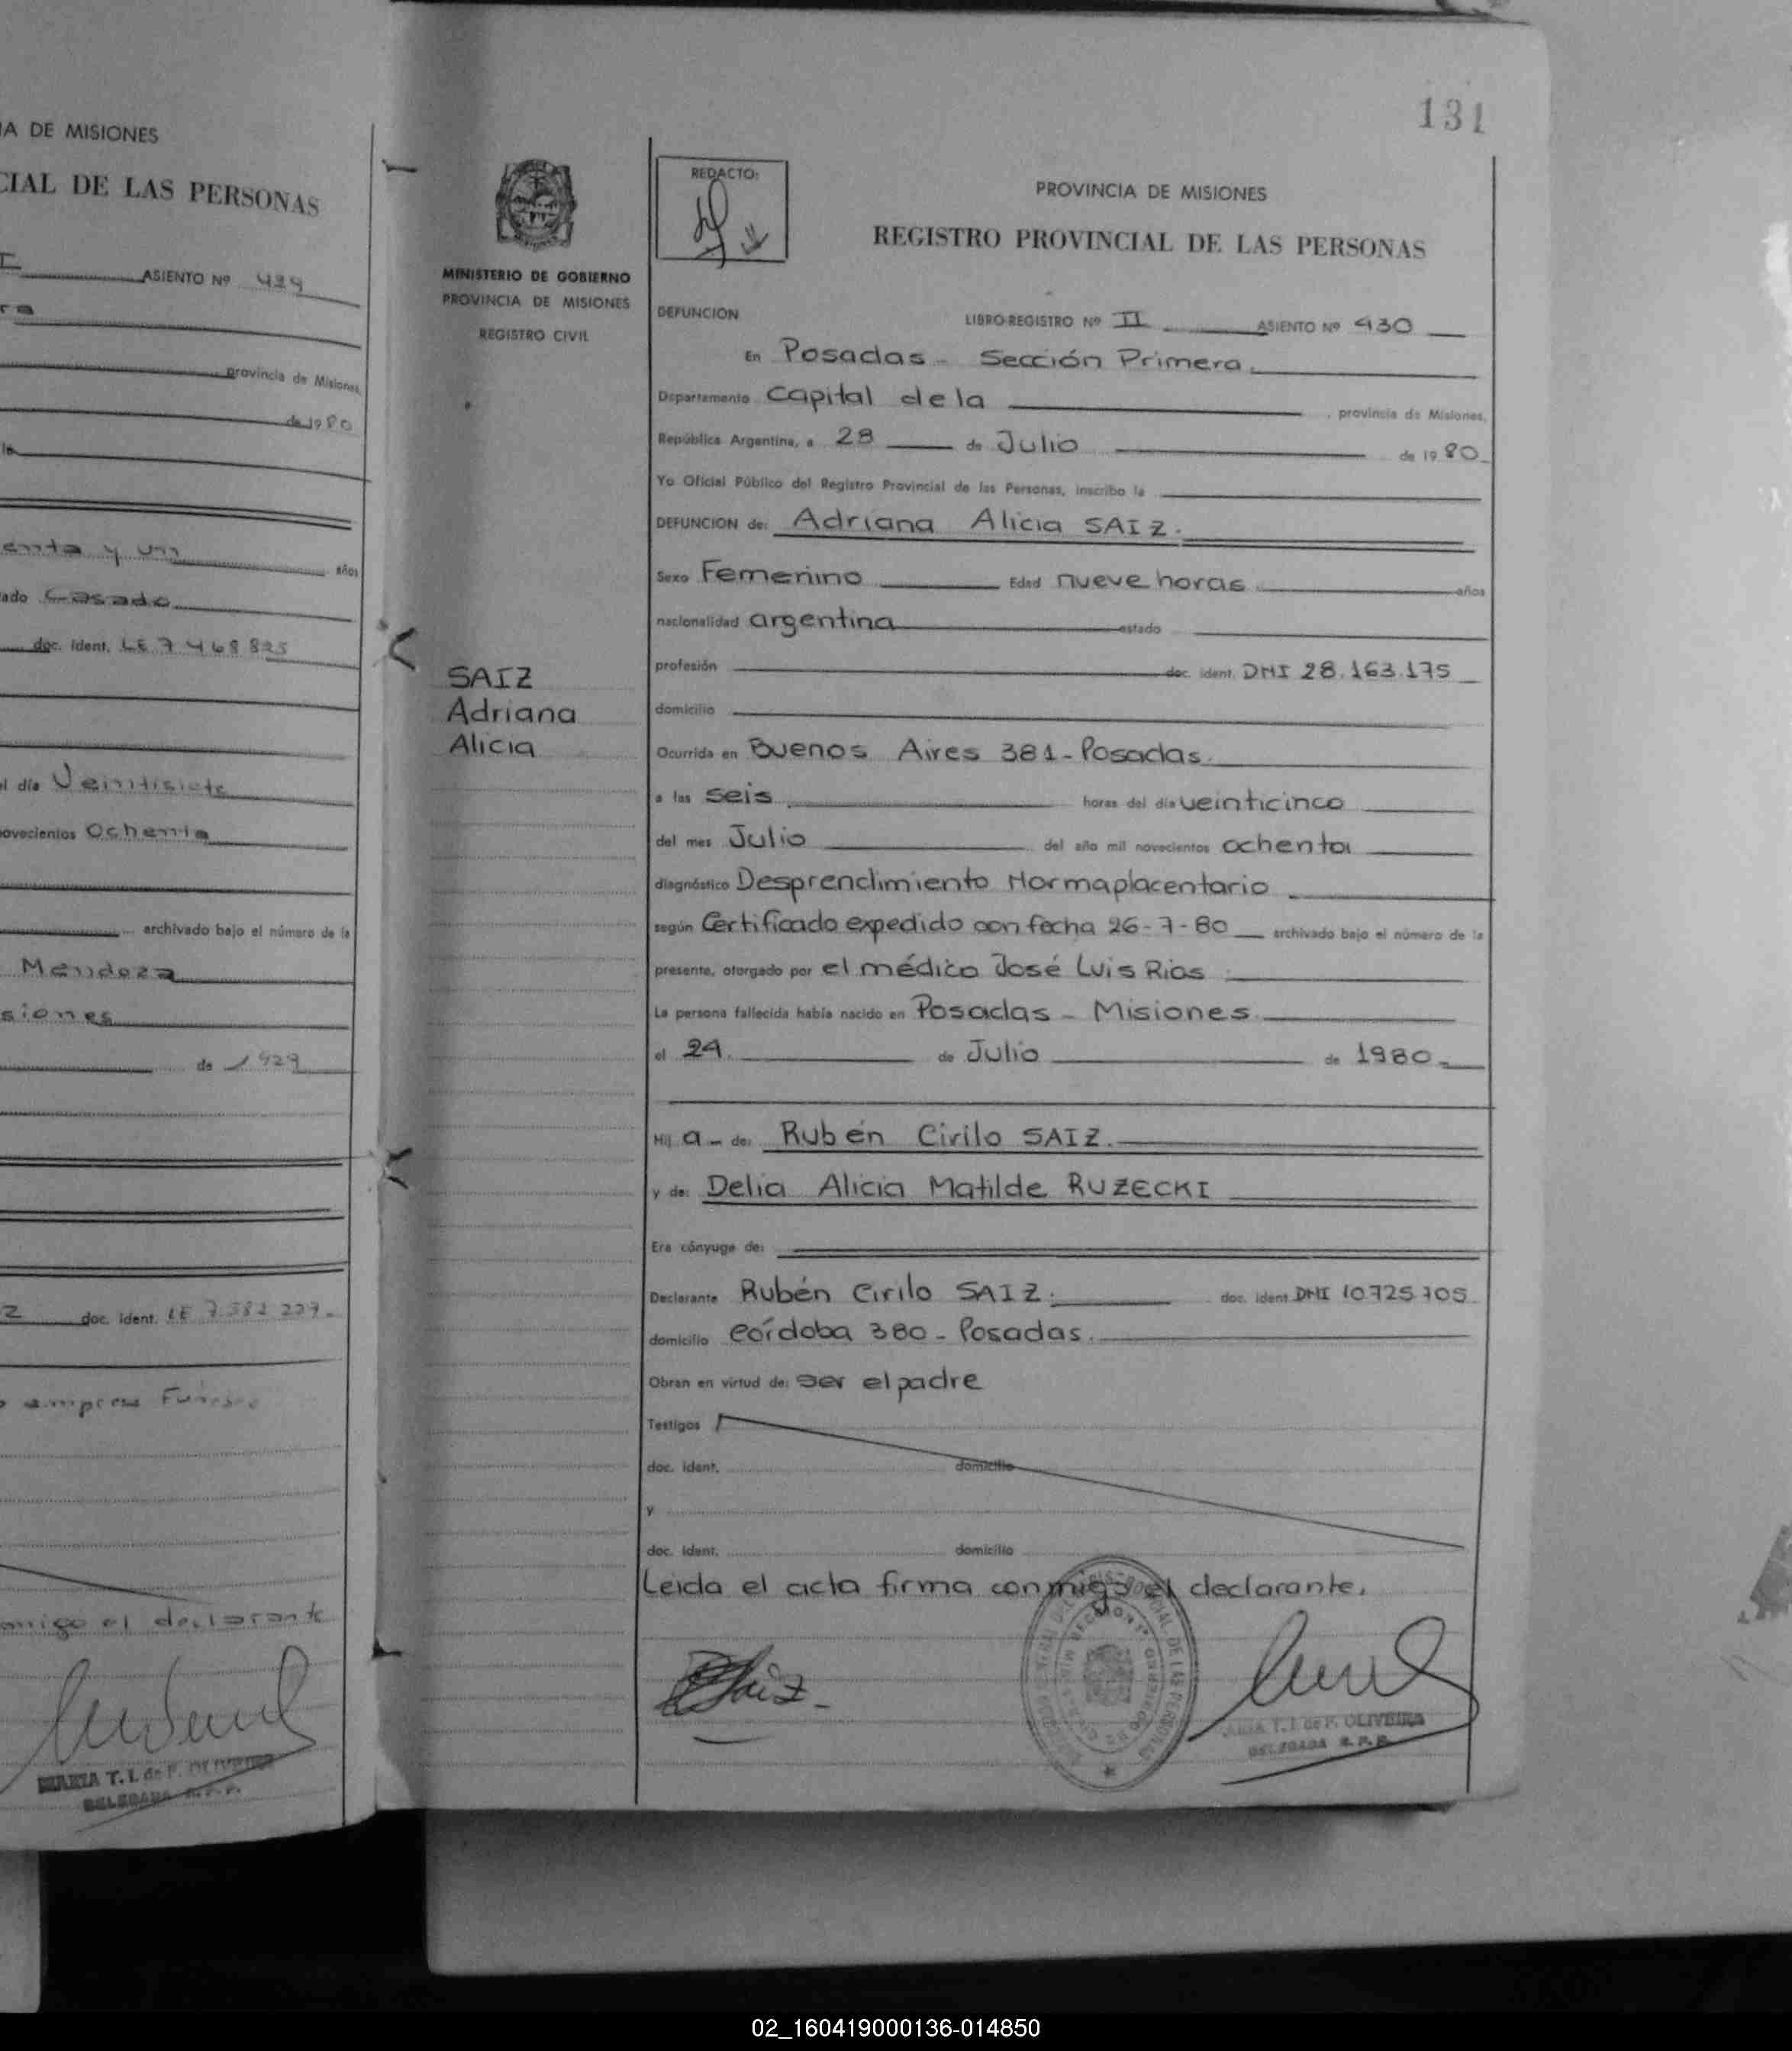 IA DE MISIONES
CIAL DE LAS PERSONAS
ASIENTO Nº 429
ra
provincia de Misiones,
de 1980
la
enta y un años
ado Casado
doc. ident. LE 7468825
el día Veintisiete
ovecientos Ochenta
archivado bajo el número de la
Mendoza
siones
de 1929
z doc. ident. LE 7.582 227.-
empresa Funebre
omigo el declarante
MARIA T. I. de F. OLIVEIRA
DELEGADA R. P. P.
131
MINISTERIO DE GOBIERNO
PROVINCIA DE MISIONES
REGISTRO CIVIL
SAIZ
Adriana
Alicia
REDACTO:
PROVINCIA DE MISIONES
REGISTRO PROVINCIAL DE LAS PERSONAS
DEFUNCION LIBRO-REGISTRO Nº II ASIENTO Nº 430
En Posadas - Sección Primera.
Departamento Capital de la , provincia de Misiones,
República Argentina, a 28 de Julio de 1980.
Yo Oficial Público del Registro Provincial de las Personas, inscribo la
DEFUNCION de: Adriana Alicia SAIZ.
Sexo Femenino Edad nueve horas años
nacionalidad argentina estado
profesión doc. ident. DNI 28.163.175
domicilio
Ocurrida en Buenos Aires 381-Posadas.
a las seis horas del día veinticinco
del mes Julio del año mil novecientos ochenta
diagnóstico Desprendimiento Normaplacentario
según Certificado expedido con fecha 26-7-80 archivado bajo el número de la
presente, otorgado por el médico José Luis Rios
La persona fallecida había nacido en Posadas - Misiones.
el 24. de Julio de 1980.
Hij a - de: Rubén Cirilo SAIZ.
y de: Delia Alicia Matilde RUZECKI
Era cónyuge de:
Declarante Rubén Cirilo SAIZ. doc. ident. DNI 10.725.705
domicilio Córdoba 380 - Posadas.
Obran en virtud de: ser el padre
Testigos
doc. ident. domicilio
y
doc. ident. domicilio
Leida el acta firma conmigo el declarante.
Saiz
MARIA T. I. de F. OLIVEIRA
DELEGADA R. P. P.
02_160419000136-014850